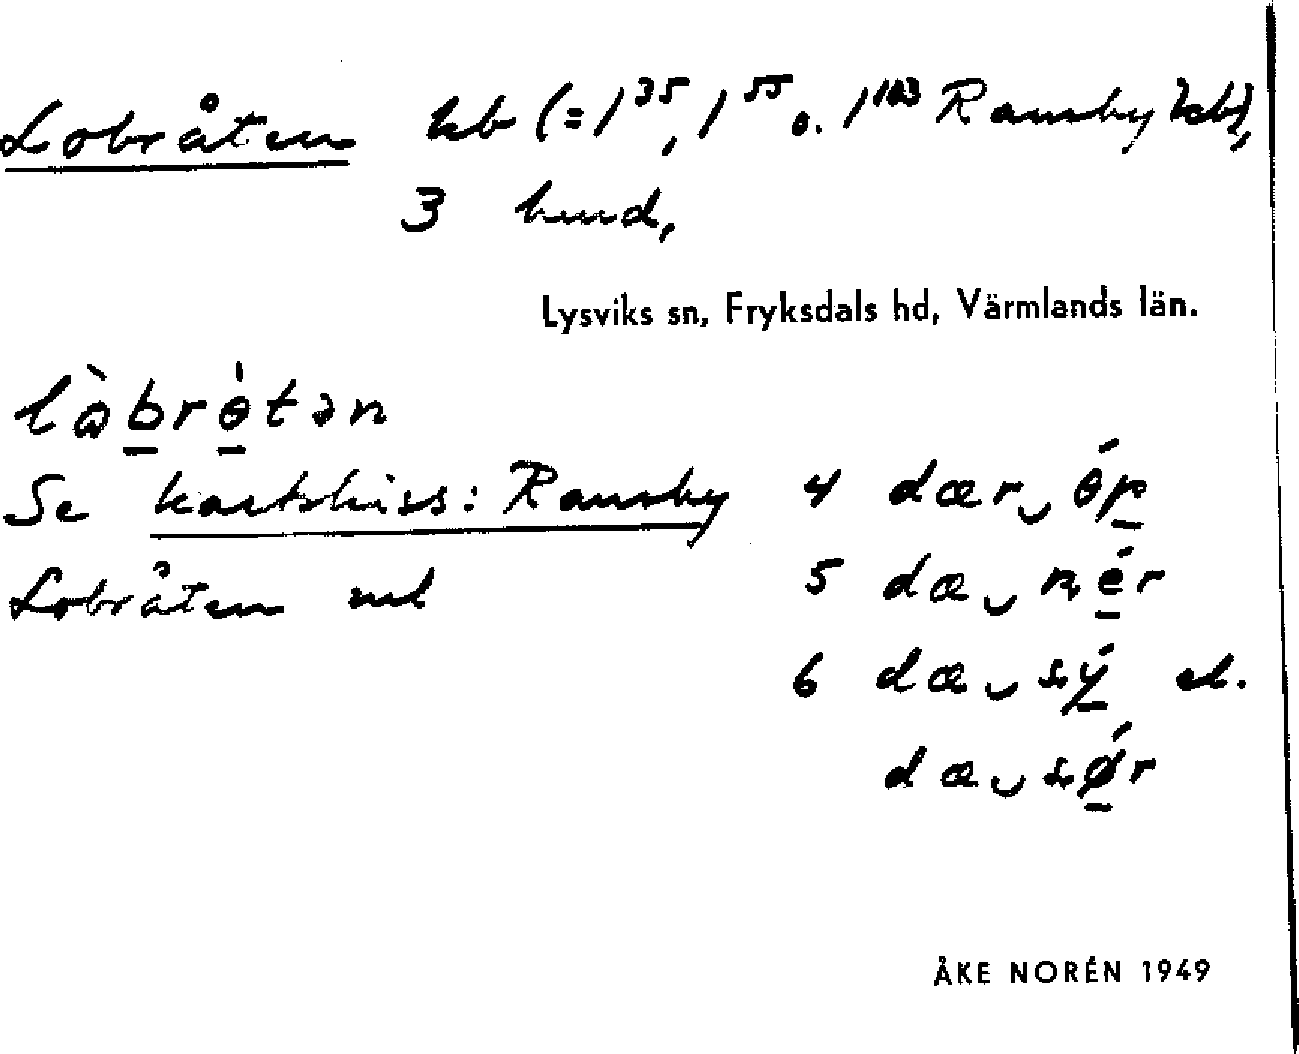 Lobråten hb (= 1³⁵, 1⁵⁵ o. 1¹⁰³ Ransby hb),
3 bund,
Lysviks sn, Fryksdals hd, Värmlands län.
lòbrótən
Se kartskiss: Ransby 4 dær‿óp
Lobråten 5 dæ‿nér
6 dæ‿sý el.
dæ‿sǿr
ÅKE NORÉN 1949